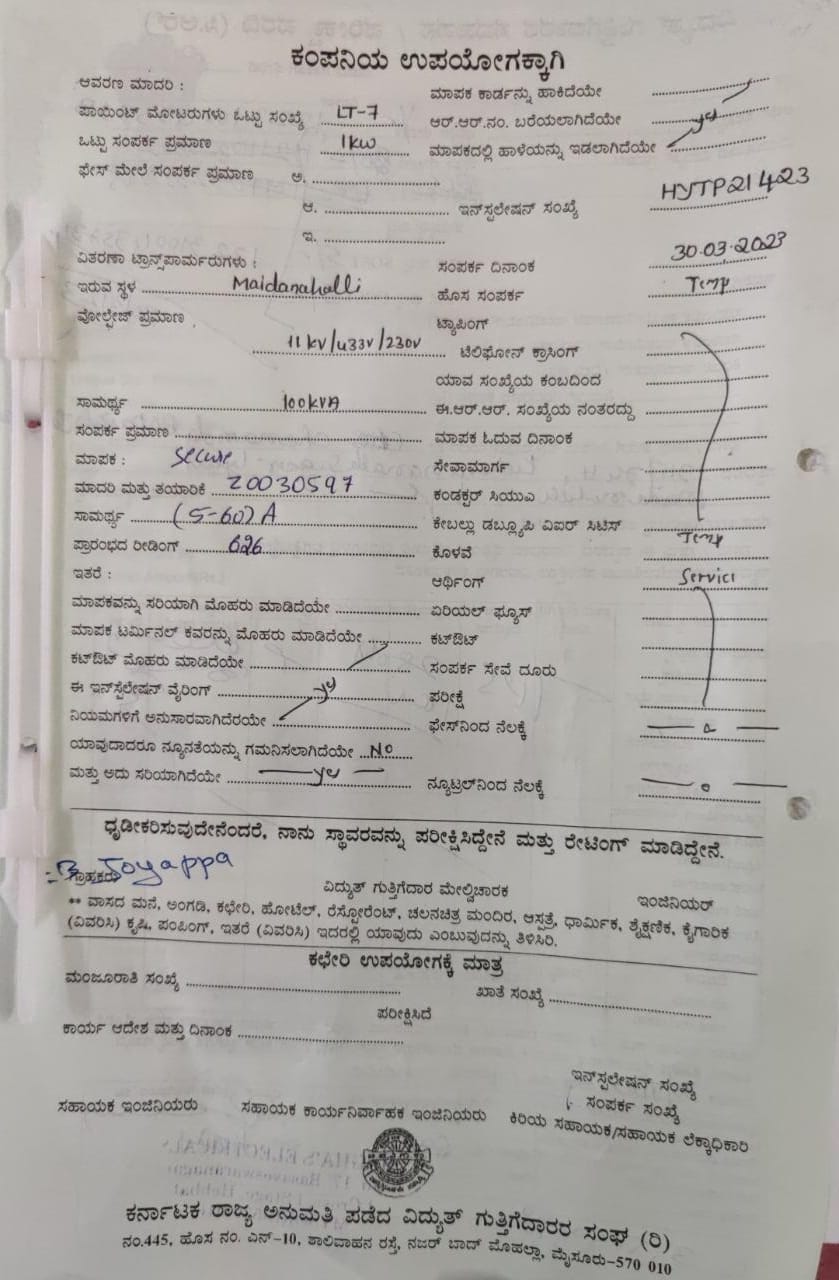 ಕಂಪನಿಯ ಉಪಯೋಗಕ್ಕಾಗಿ
ಆವರಣ ಮಾದರಿ :
ಮಾಪಕ ಕಾರ್ಡನ್ನು ಹಾಕಿದೆಯೇ
ಪಾಯಿಂಟ್ ಮೋಟರುಗಳು ಓಟ್ಟು ಸಂಖ್ಯೆ LT-7 ಆರ್.ಆರ್.ನಂ. ಬರೆಯಲಾಗಿದೆಯೇ
ಒಟ್ಟು ಸಂಪರ್ಕ ಪ್ರಮಾಣ 1kw ಮಾಪಕದಲ್ಲಿ ಹಾಳೆಯನ್ನು ಇಡಲಾಗಿದೆಯೇ yes
ಫೇಸ್ ಮೇಲೆ ಸಂಪರ್ಕ ಪ್ರಮಾಣ ಅ.
ಆ. ಇನ್‌ಸ್ಟಲೇಷನ್ ಸಂಖ್ಯೆ HYTP21423
ಇ.
ವಿತರಣಾ ಟ್ರಾನ್ಸ್‌ಪಾರ್ಮರುಗಳು : ಸಂಪರ್ಕ ದಿನಾಂಕ 30.03.2023
ಇರುವ ಸ್ಥಳ Maidanahalli ಹೊಸ ಸಂಪರ್ಕ Temp
ವೋಲ್ಟೇಜ್ ಪ್ರಮಾಣ ಟ್ಯಾಪಿಂಗ್
11kv/433v/230v ಟೆಲಿಫೋನ್ ಕ್ರಾಸಿಂಗ್
ಯಾವ ಸಂಖ್ಯೆಯ ಕಂಬದಿಂದ
ಸಾಮರ್ಥ್ಯ 100kVA ಈ.ಆರ್.ಆರ್. ಸಂಖ್ಯೆಯ ನಂತರದ್ದು
ಸಂಪರ್ಕ ಪ್ರಮಾಣ ಮಾಪಕ ಓದುವ ದಿನಾಂಕ
ಮಾಪಕ : Secure ಸೇವಾಮಾರ್ಗ
ಮಾದರಿ ಮತ್ತು ತಯಾರಿಕೆ 20030597 ಕಂಡಕ್ಟರ್ ಸಿಯುಎ
ಸಾಮರ್ಥ್ಯ (5-60)A ಕೇಬಲ್ಲು ಡಬ್ಲ್ಯೂಪಿ ವಿಐರ್ ಸಿಟಿಸ್
ಪ್ರಾರಂಭದ ರೀಡಿಂಗ್ 626 ಕೊಳವೆ Temp
ಇತರೆ : ಆರ್ಥಿಂಗ್ Service
ಮಾಪಕವನ್ನು ಸರಿಯಾಗಿ ಮೊಹರು ಮಾಡಿದೆಯೇ ಏರಿಯಲ್ ಫ್ಯೂಸ್
ಮಾಪಕ ಟರ್ಮಿನಲ್ ಕವರನ್ನು ಮೊಹರು ಮಾಡಿದೆಯೇ ಕಟ್‌ಔಟ್
ಕಟ್‌ಔಟ್ ಮೊಹರು ಮಾಡಿದೆಯೇ ಸಂಪರ್ಕ ಸೇವೆ ದೂರು
ಈ ಇನ್‌ಸ್ಟಲೇಷನ್ ವೈರಿಂಗ್ yes ಪರೀಕ್ಷೆ
ನಿಯಮಗಳಿಗೆ ಅನುಸಾರವಾಗಿದೆರಯೇ ಫೇಸ್‌ನಿಂದ ನೆಲಕ್ಕೆ
ಯಾವುದಾದರೂ ನ್ಯೂನತೆಯನ್ನು ಗಮನಿಸಲಾಗಿದೆಯೇ No
ಮತ್ತು ಅದು ಸರಿಯಾಗಿದೆಯೇ yes ನ್ಯೂಟ್ರಲ್‌ನಿಂದ ನೆಲಕ್ಕೆ
ಧೃಡೀಕರಿಸುವುದೇನೆಂದರೆ, ನಾನು ಸ್ಥಾವರವನ್ನು ಪರೀಕ್ಷಿಸಿದ್ದೇನೆ ಮತ್ತು ರೇಟಿಂಗ್ ಮಾಡಿದ್ದೇನೆ.
B Joyappa
ಗ್ರಾಹಕರು ವಿದ್ಯುತ್ ಗುತ್ತಿಗೆದಾರ ಮೇಲ್ವಿಚಾರಕ ಇಂಜಿನಿಯರ್
** ವಾಸದ ಮನೆ, ಅಂಗಡಿ, ಕಛೇರಿ, ಹೋಟೆಲ್, ರೆಸ್ಟೋರೆಂಟ್, ಚಲನಚಿತ್ರ ಮಂದಿರ, ಆಸ್ಪತ್ರೆ, ಧಾರ್ಮಿಕ, ಶೈಕ್ಷಣಿಕ, ಕೈಗಾರಿಕ
(ವಿವರಿಸಿ) ಕೃಷಿ, ಪಂಪಿಂಗ್, ಇತರೆ (ವಿವರಿಸಿ) ಇದರಲ್ಲಿ ಯಾವುದು ಎಂಬುವುದನ್ನು ತಿಳಿಸಿರಿ.
ಕಛೇರಿ ಉಪಯೋಗಕ್ಕೆ ಮಾತ್ರ
ಮಂಜೂರಾತಿ ಸಂಖ್ಯೆ ಖಾತೆ ಸಂಖ್ಯೆ
ಪರೀಕ್ಷಿಸಿದೆ
ಕಾರ್ಯ ಆದೇಶ ಮತ್ತು ದಿನಾಂಕ
ಇನ್‌ಸ್ಟಲೇಷನ್ ಸಂಖ್ಯೆ
ಸಂಪರ್ಕ ಸಂಖ್ಯೆ
ಸಹಾಯಕ ಇಂಜಿನಿಯರು ಸಹಾಯಕ ಕಾರ್ಯನಿರ್ವಾಹಕ ಇಂಜಿನಿಯರು ಕಿರಿಯ ಸಹಾಯಕ/ಸಹಾಯಕ ಲೆಕ್ಕಾಧಿಕಾರಿ
ಕರ್ನಾಟಕ ರಾಜ್ಯ ಅನುಮತಿ ಪಡೆದ ವಿದ್ಯುತ್ ಗುತ್ತಿಗೆದಾರರ ಸಂಘ (ರಿ)
ನಂ.445, ಹೊಸ ನಂ. ಎನ್-10, ಶಾಲಿವಾಹನ ರಸ್ತೆ, ನಜರ್ ಬಾದ್ ಮೊಹಲ್ಲಾ, ಮೈಸೂರು-570 010